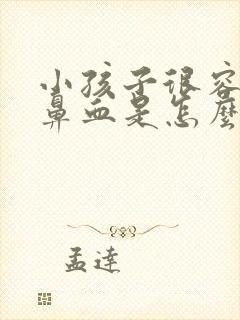 小孩子很容
鼻血是怎麼
孟達